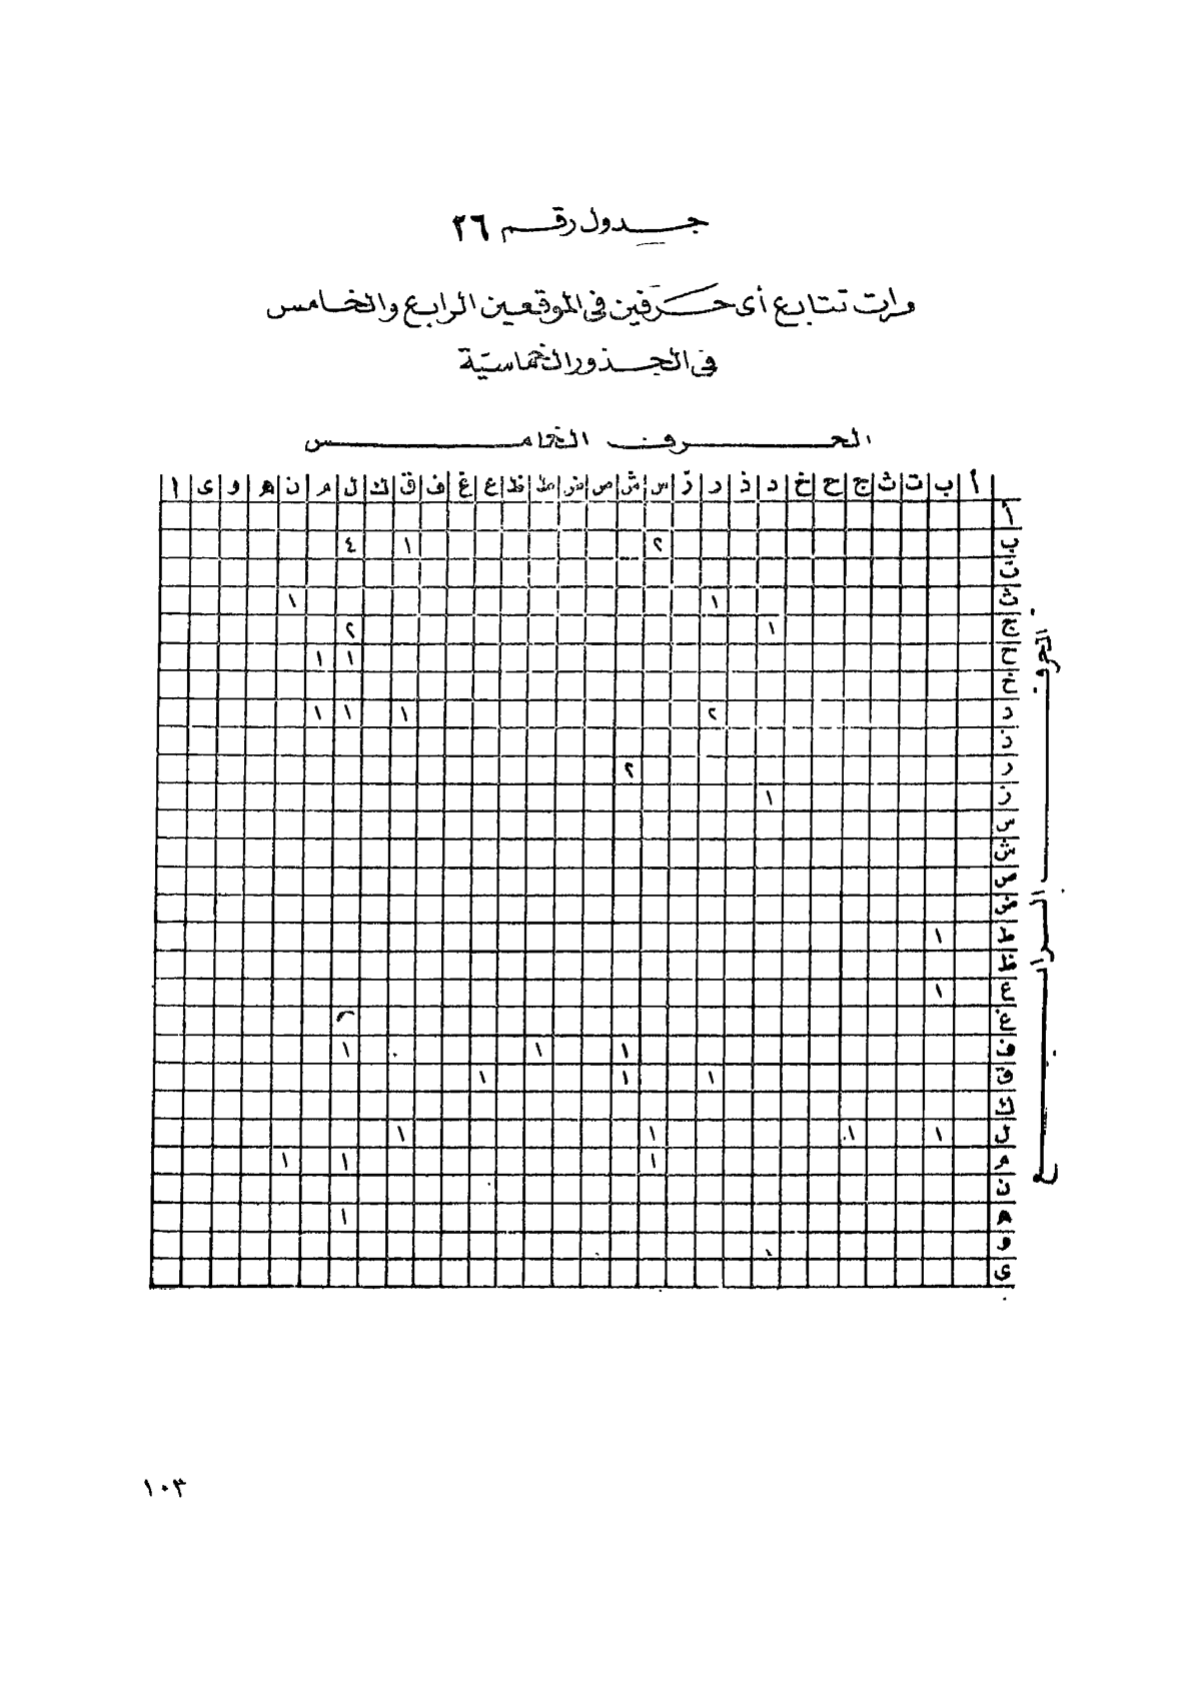 جدول رقم ٢٦
مرات تتابع أى حرفين فى الموقعين الرابع والخامس
فى الجذور الخماسية
الحرف الخامس
أ ب ت ث ج ح خ د ذ ر ز س ش ص ض ط ظ ع غ ف ق ك ل م ن ه و ى ا
الحرف الرابع
أ
ب ٢ ١ ٤
ت
ث ١ ١
ج ١ ٢
ح ١ ١
خ
د ٢ ١ ١ ١
ذ
ر ٢
ز ١
س
ش
ص
ض
ط ١
ظ
ع ١
غ
ف ١ ١ ١
ق ١ ١ ١
ك
ل ١ ١ ١ ١
م ١ ١ ١
ن
ه ١
و ١
ى
١٠٣